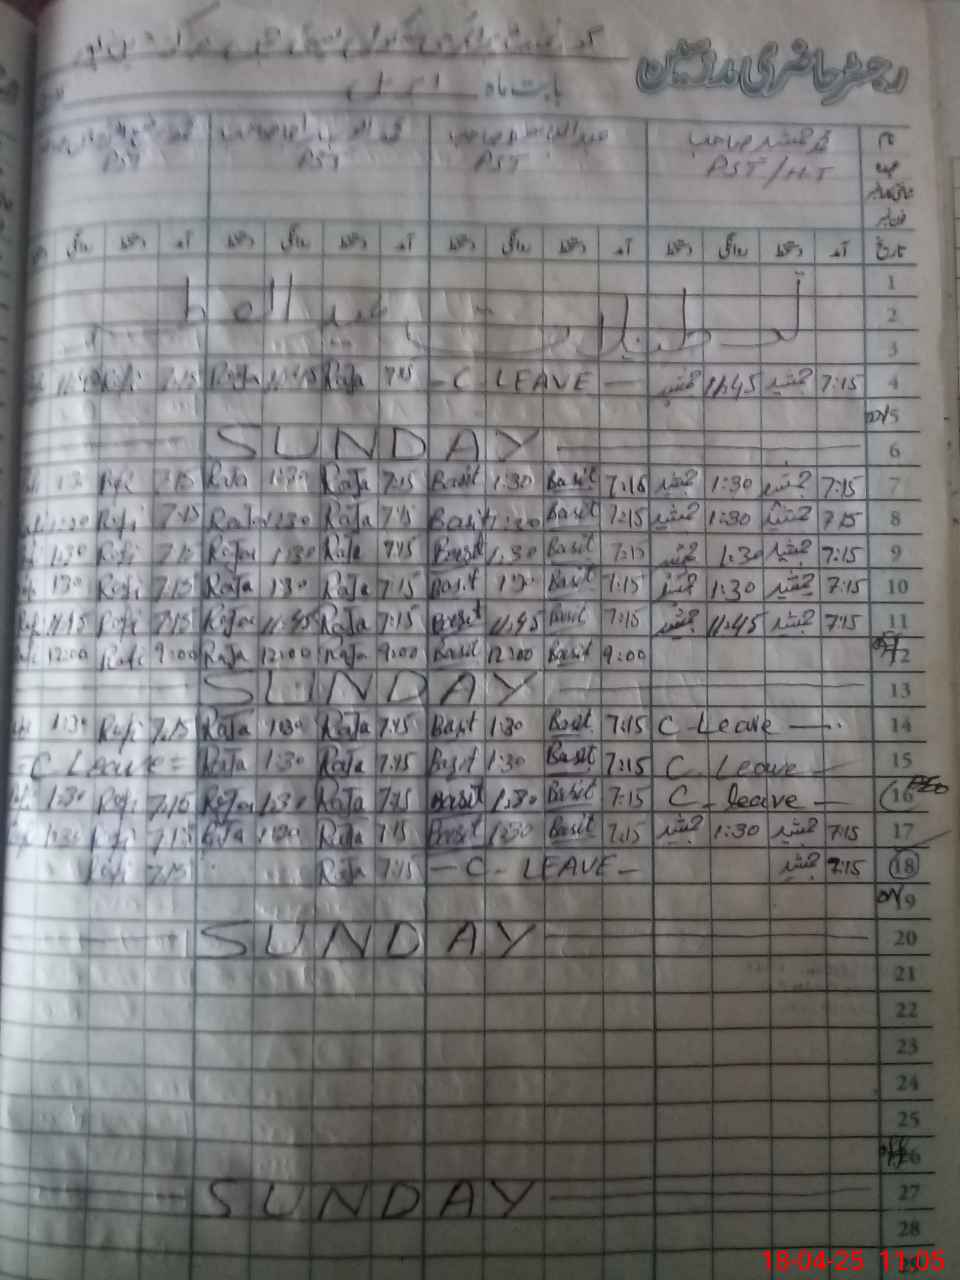 رجسٹر حاضری مدرسین
بابت ماہ اپریل
جمشید صاحب
PST/HT PST PST PST
تاریخ آمد دستخط روانگی دستخط آمد دستخط روانگی دستخط آمد دستخط روانگی دستخط آمد دستخط روانگی
1
2
3
4 7:15 جمشید 11:45 جمشید - C LEAVE - 7:15 Raja 11:45 Raja 7:15 Rafi 11:45
5
6 SUNDAY
7 7:15 جمشید 1:30 جمشید 7:16 Basit 1:30 Basit 7:15 Raja 1:30 Raja 7:15 Rafi 1:30
8 7:15 جمشید 1:30 جمشید 7:15 Basit 1:30 Basit 7:15 Raja 1:30 Raja 7:15 Rafi 1:30
9 7:15 جمشید 1:30 جمشید 7:15 Basit 1:30 Basit 7:15 Raja 1:30 Raja 7:15 Rafi 1:30
10 7:15 جمشید 1:30 جمشید 7:15 Basit 1:30 Basit 7:15 Raja 1:30 Raja 7:15 Rafi 1:30
11 7:15 جمشید 11:45 جمشید 7:15 Basit 11:45 Basit 7:15 Raja 11:45 Raja 7:15 Rafi 11:45
off 12 9:00 Basit 12:00 Basit 9:00 Raja 12:00 Raja 9:00 Rafi 12:00
13 SUNDAY
14 C Leave 7:15 Basit 1:30 Basit 7:15 Raja 1:30 Raja 7:15 Rafi 1:30
15 C Leave 7:15 Basit 1:30 Basit 7:15 Raja 1:30 Raja = C Leave =
16 C leave 7:15 Basit 1:30 Basit 7:15 Raja 1:30 Raja 7:15 Rafi 1:30
17 7:15 جمشید 1:30 جمشید 7:15 Basit 1:30 Basit 7:15 Raja 1:30 Raja 7:15 Rafi 1:30
18 7:15 جمشید - C - LEAVE - 7:15 Raja 7:15 Rafi
19
20 SUNDAY
21
22
23
24
25
off 26
27 SUNDAY
28
18-04-25 11:05